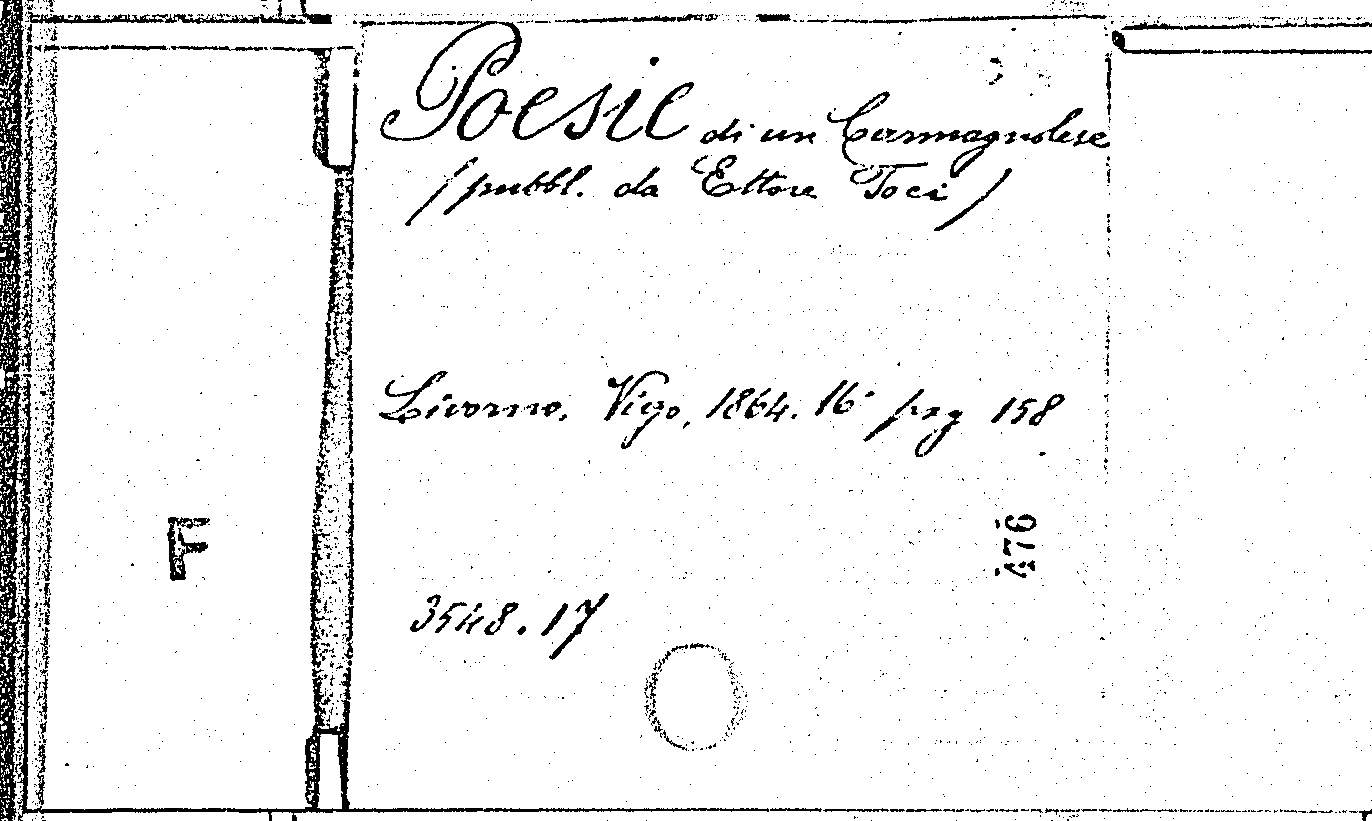 Poesie di un Carmagnolese
(pubbl. da Ettore Toci)
Livorno. Vigo, 1864. 16° pag 158
F
476
3548.17